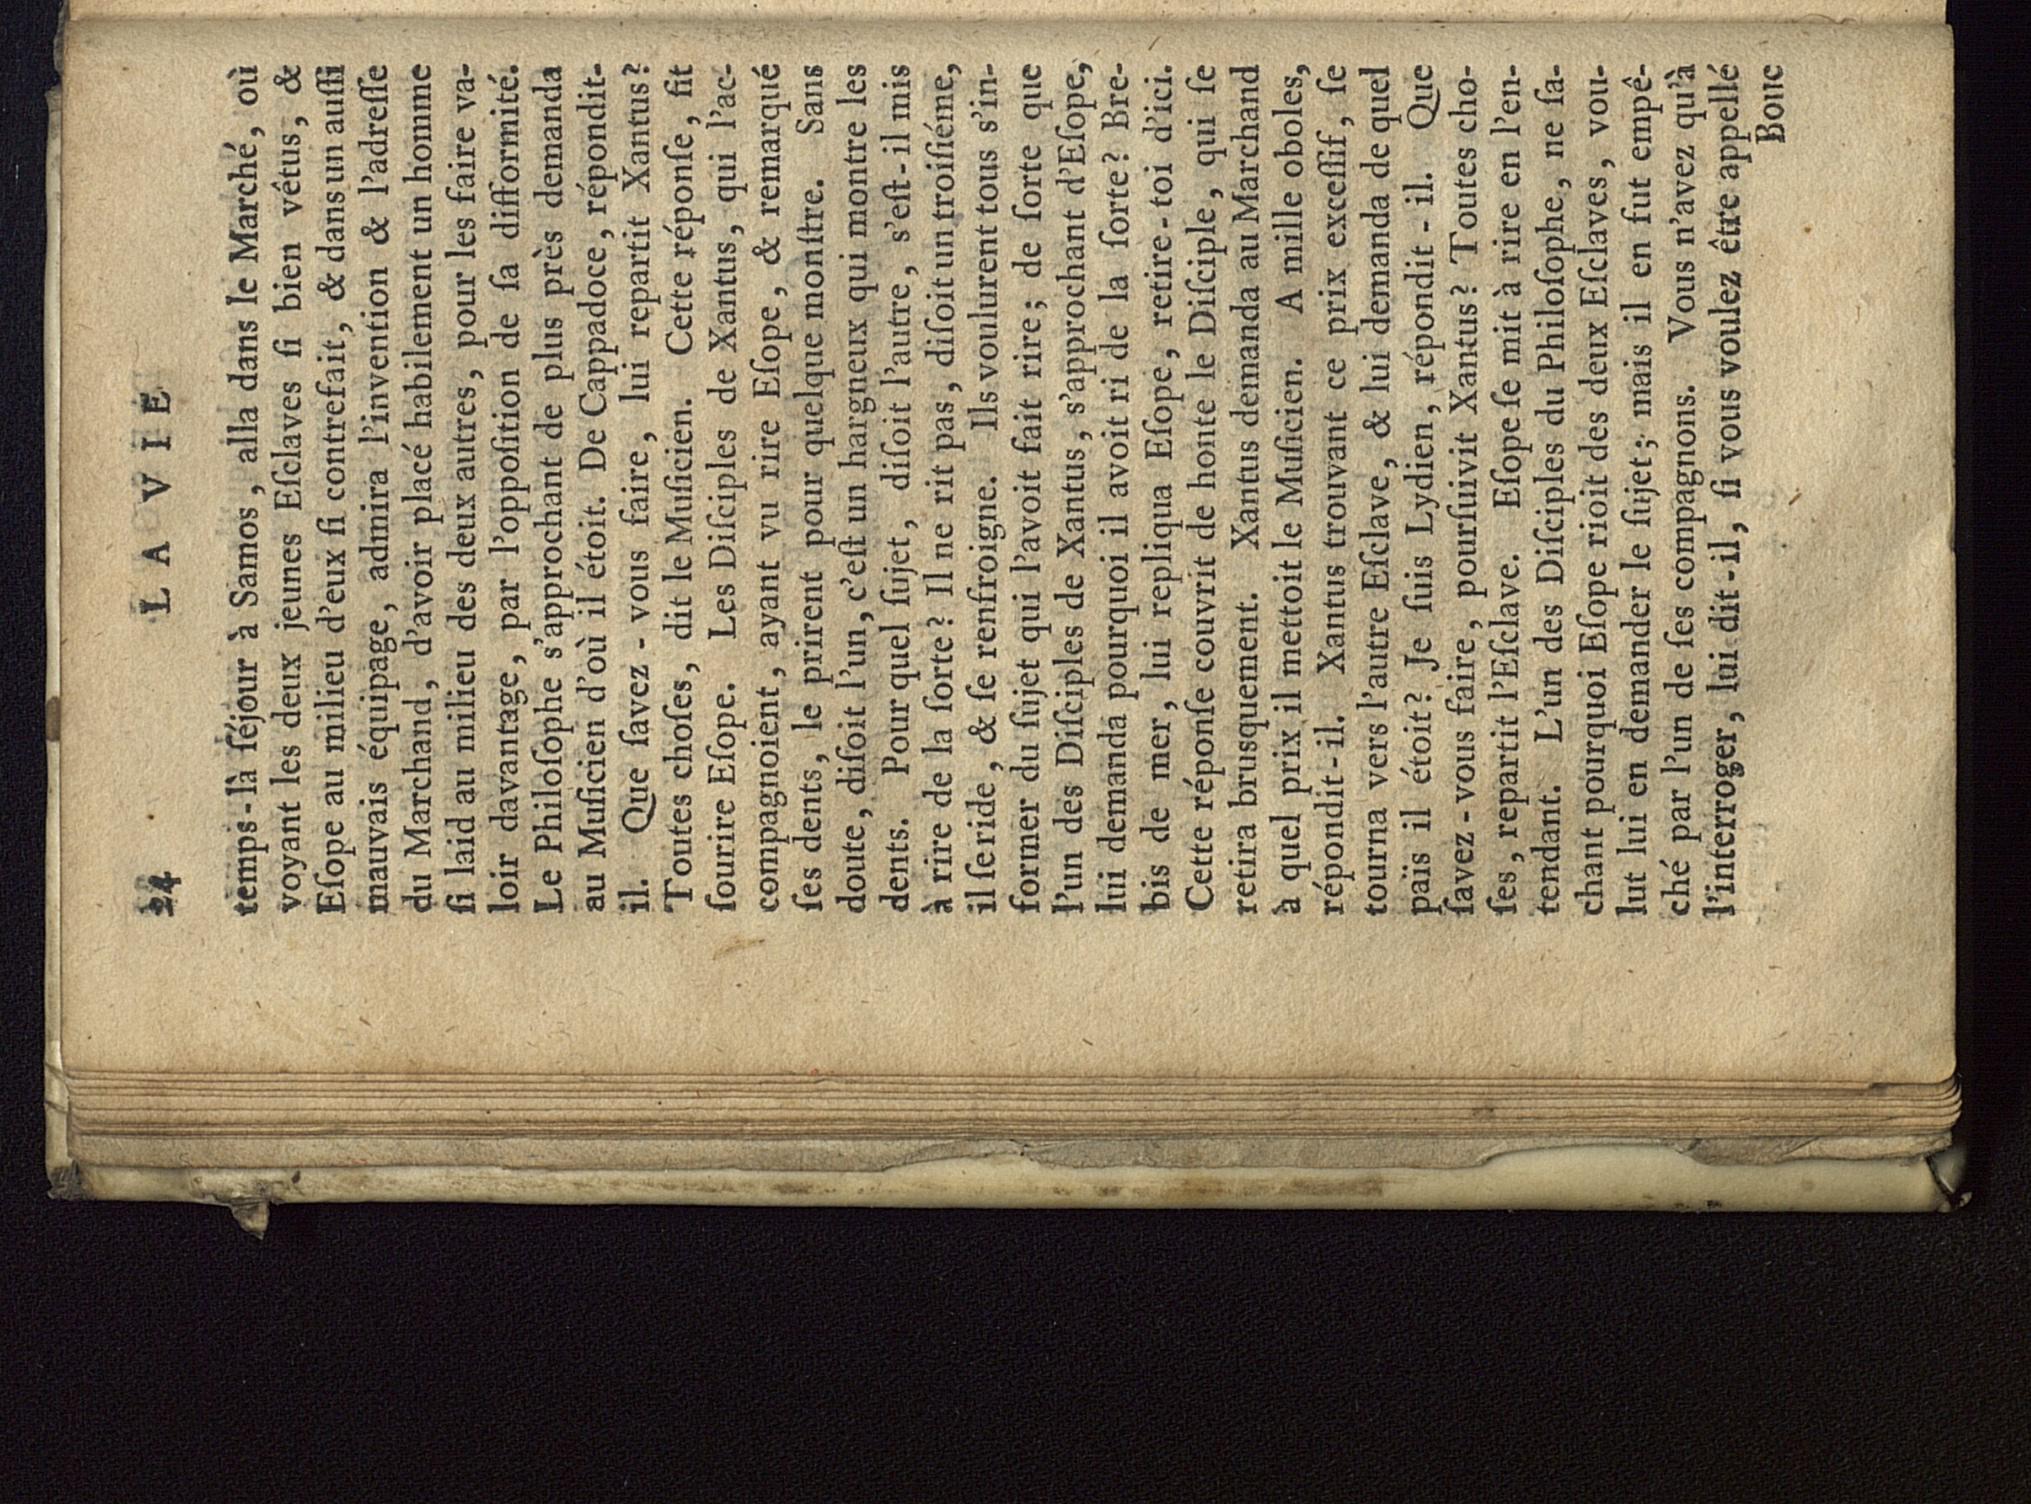 24 LA VIE
temps-là ſéjour à Samos, alla dans le Marché, où
voyant les deux jeunes Eſclaves ſi bien vêtus, &
Eſope au milieu d'eux ſi contrefait, & dans un auſſi
mauvais équipage, admira l'invention & l'adreſſe
du Marchand, d'avoir placé habilement un homme
ſi laid au milieu des deux autres, pour les faire va-
loir davantage, par l'oppoſition de ſa difformité.
Le Philoſophe s'approchant de plus près demanda
au Muſicien d'où il étoit. De Cappadoce, répondit-
il. Que ſavez-vous faire, lui repartit Xantus?
Toutes choſes, dit le Muſicien. Cette réponſe, fit
ſourire Eſope. Les Diſciples de Xantus, qui l'ac-
compagnoient, ayant vu rire Eſope, & remarqué
ſes dents, le prirent pour quelque monſtre. Sans
doute, diſoit l'un, c'eſt un hargneux qui montre les
dents. Pour quel ſujet, diſoit l'autre, s'eſt-il mis
à rire de la ſorte? Il ne rit pas, diſoit un troiſiéme,
il ſe ride, & ſe renfroigne. Ils voulurent tous s'in-
former du ſujet qui l'avoit fait rire; de ſorte que
l'un des Diſciples de Xantus, s'approchant d'Eſope,
lui demanda pourquoi il avoit ri de la ſorte? Bre-
bis de mer, lui repliqua Eſope, retire-toi d'ici.
Cette réponſe couvrit de honte le Diſciple, qui ſe
retira brusquement. Xantus demanda au Marchand
à quel prix il mettoit le Muſicien. A mille oboles,
répondit-il. Xantus trouvant ce prix exceſſif, ſe
tourna vers l'autre Eſclave, & lui demanda de quel
païs il étoit? Je ſuis Lydien, répondit-il. Que
ſavez-vous faire, pourſuivit Xantus? Toutes cho-
ſes, repartit l'Eſclave. Eſope ſe mit à rire en l'en-
tendant. L'un des Diſciples du Philoſophe, ne ſa-
chant pourquoi Eſope rioit des deux Eſclaves, vou-
lut lui en demander le ſujet; mais il en fut empê-
ché par l'un de ſes compagnons. Vous n'avez qu'à
l'interroger, lui dit-il, ſi vous voulez être appellé
Bouc